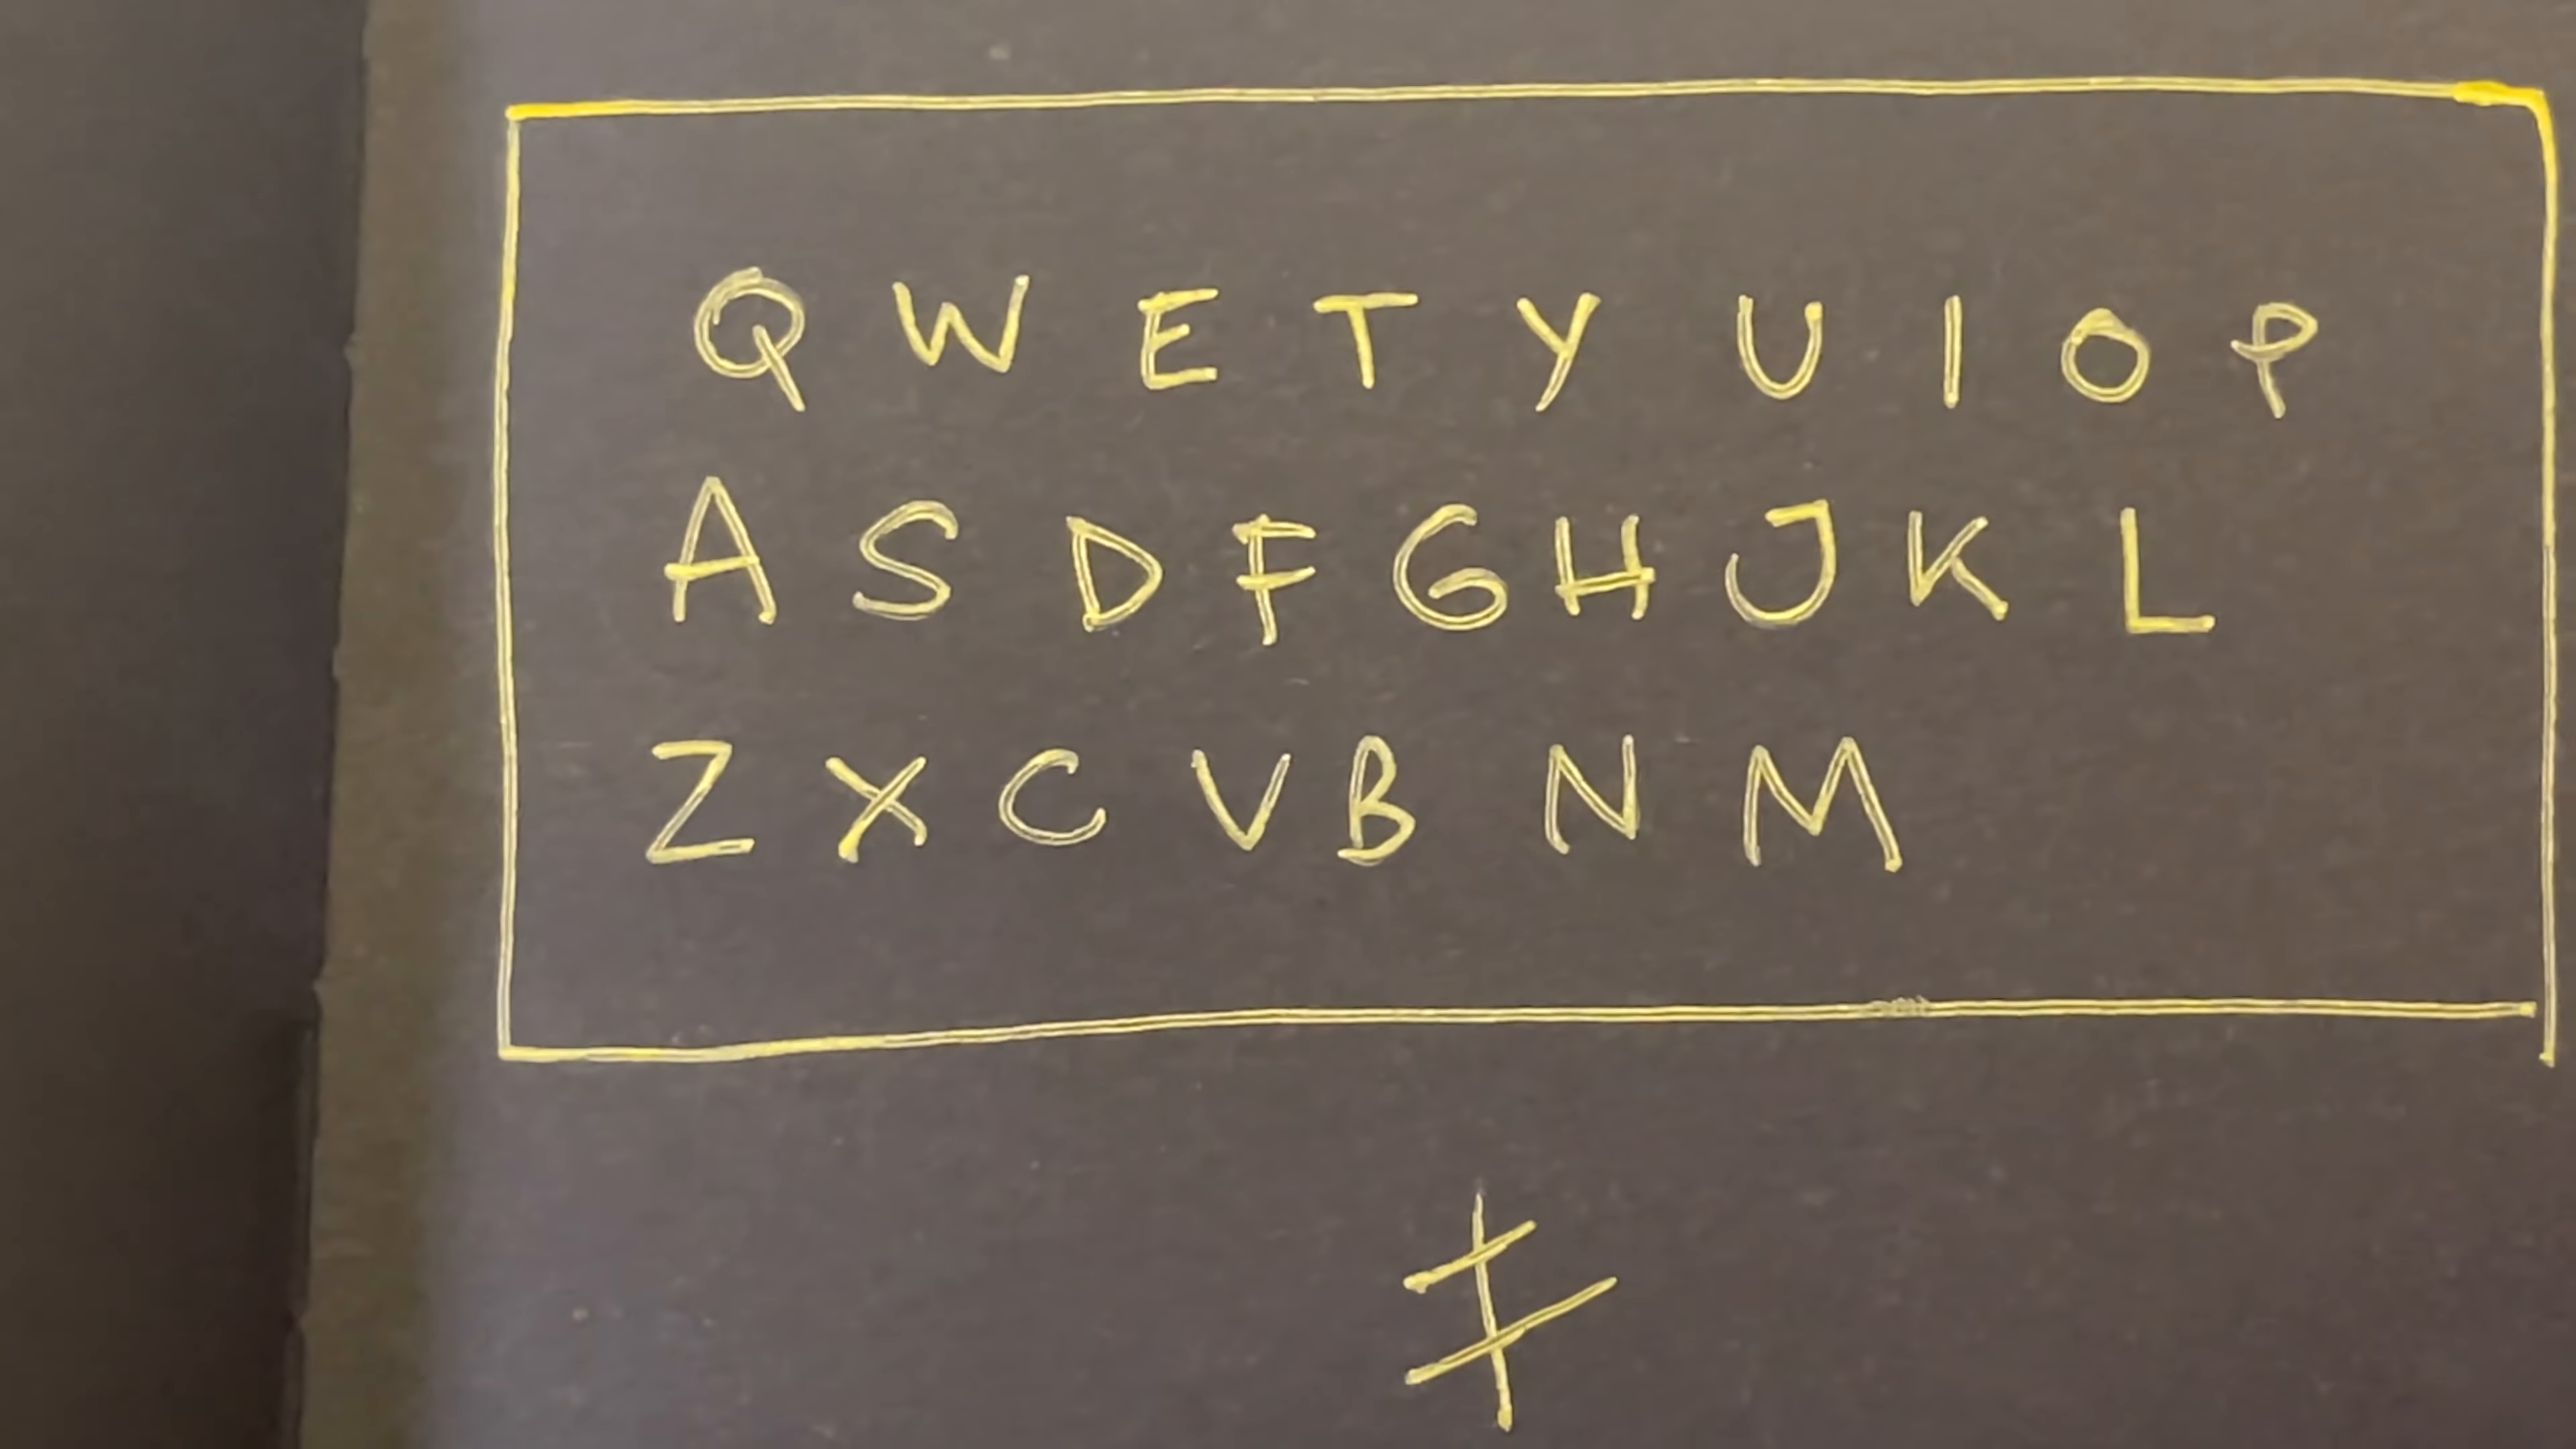 Q W E T Y U I O P
A S D F G H J K L
Z X C V B N M